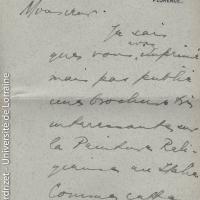 FLORENCE.
Monsieur.
Je sais
que vous, vous imprimé
mais pas publié
une brochure très
interressante sur
la Peinture Reli-
gieuse en Italie
Comme cette
rdrizet – Université de Lorraine